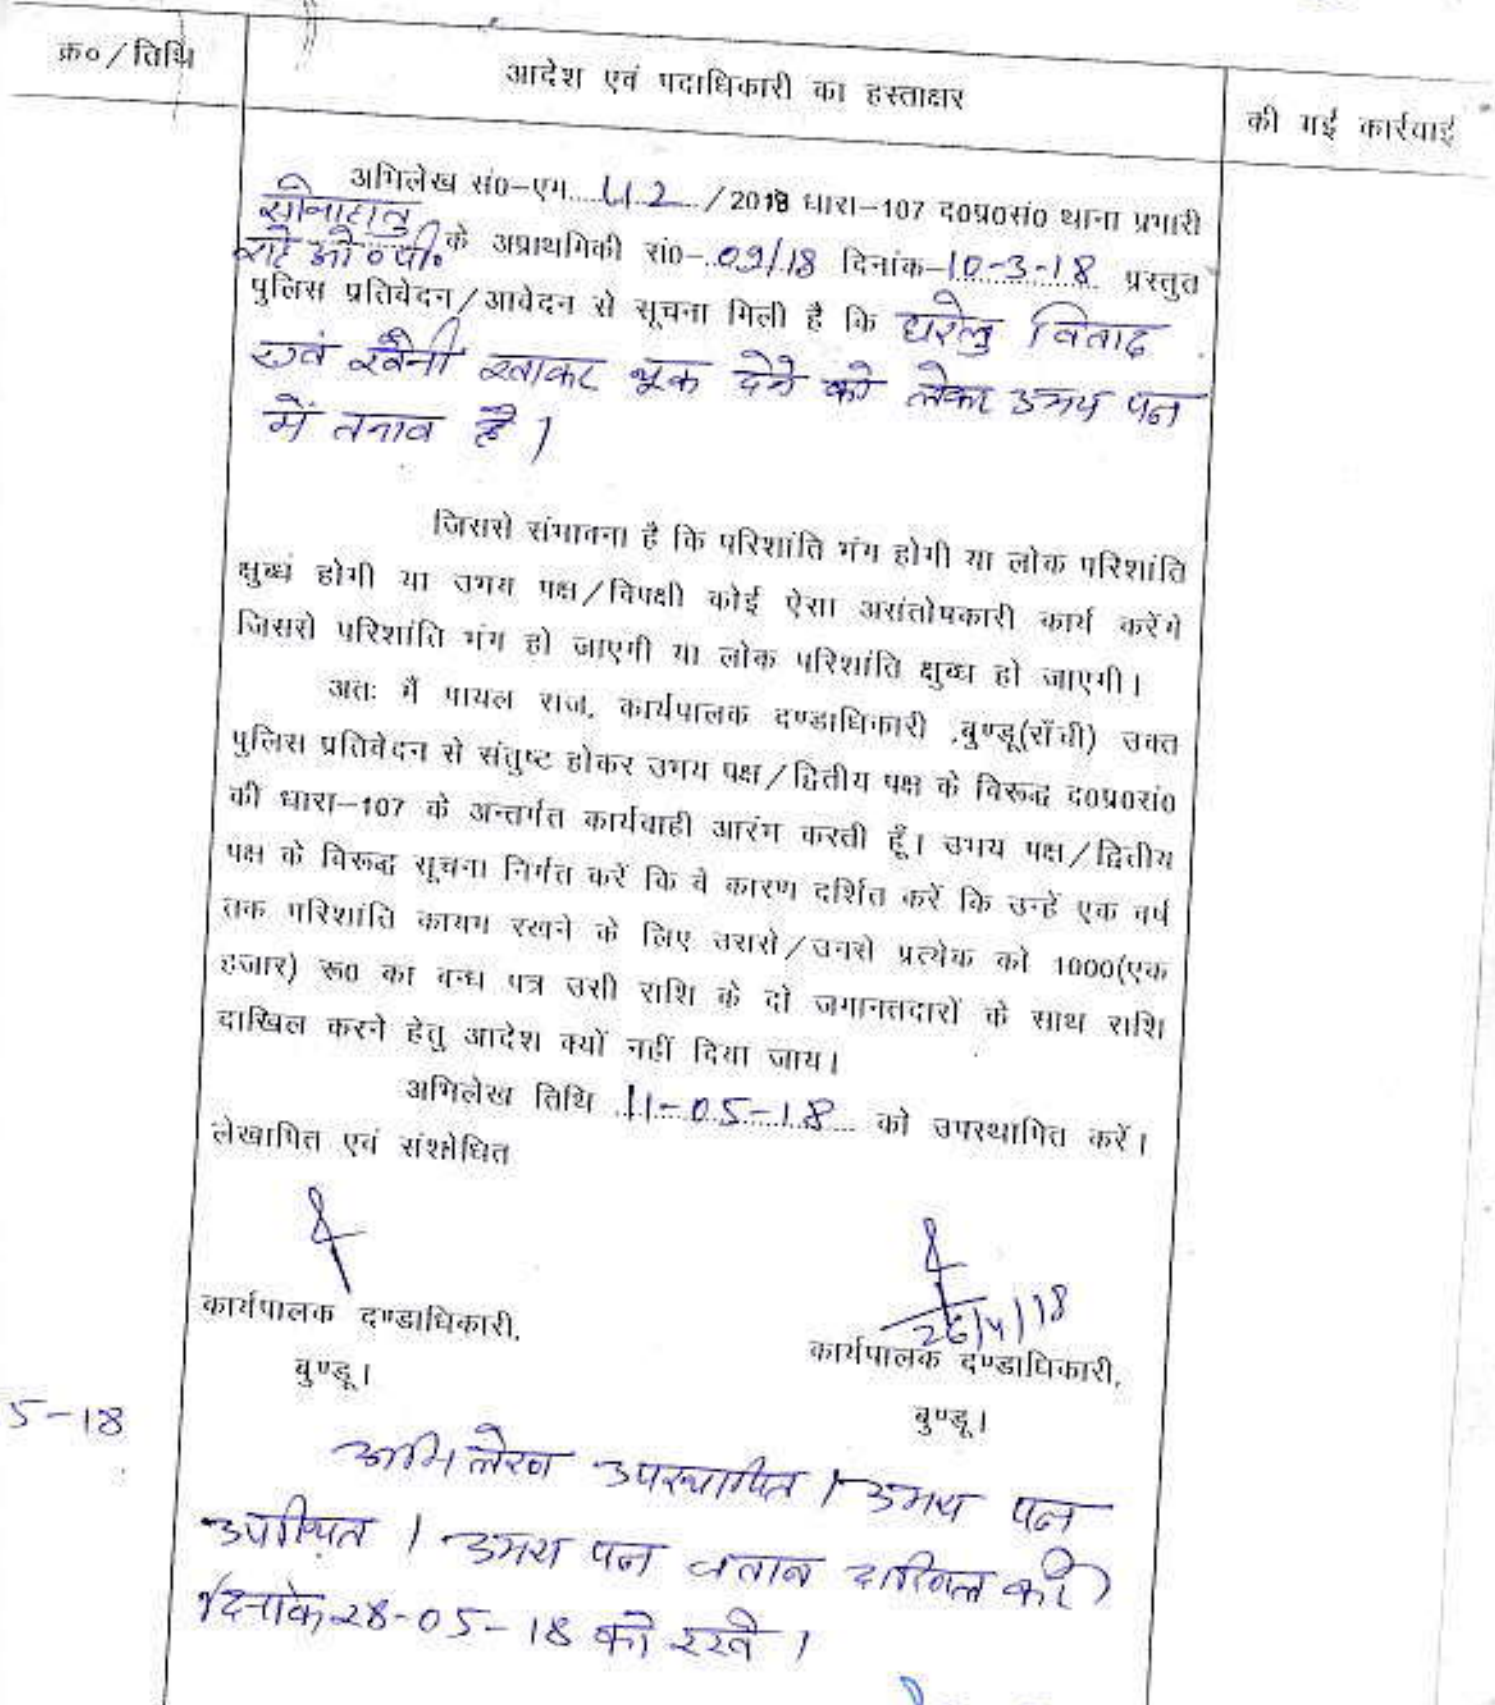 क्र०/तिथि
आदेश एवं पदाधिकारी का हस्ताक्षर
की गई कार्रवाई
अभिलेख सं0-एम. 42 /2018 धारा-107 द0प्र0सं0 थाना प्रभारी
सोनाहातु
राहे ओ०पी० के अप्राथमिकी सं0-09/18 दिनांक-10-3-18 प्रस्तुत
पुलिस प्रतिवेदन/आवेदन से सूचना मिली है कि घरेलु विवाद
एवं खैनी खाकर थूक देने को लेकर उभय पक्ष
में तनाव है।
जिससे संभावना है कि परिशांति भंग होगी या लोक परिशांति
क्षुब्ध होगी या उभय पक्ष/विपक्षी कोई ऐसा असंतोषकारी कार्य करेंगे
जिससे परिशांति भंग हो जाएगी या लोक परिशांति क्षुब्ध हो जाएगी।
अतः मैं पायल राज, कार्यपालक दण्डाधिकारी ,बुण्डू(राँची) उक्त
पुलिस प्रतिवेदन से संतुष्ट होकर उभय पक्ष/द्वितीय पक्ष के विरूद्ध द0प्र0सं0
की धारा-107 के अन्तर्गत कार्यवाही आरंभ करती हूँ। उभय पक्ष/द्वितीय
पक्ष के विरूद्ध सूचना निर्गत करें कि वे कारण दर्शित करें कि उन्हें एक वर्ष
तक परिशांति कायम रखने के लिए उससे/उनसे प्रत्येक को 1000(एक
हजार) रू0 का बन्ध पत्र उसी राशि के दो जमानतदारों के साथ राशि
दाखिल करने हेतु आदेश क्यों नहीं दिया जाय।
अभिलेख तिथि 11-05-18 को उपस्थापित करें।
लेखापित एवं संशोधित
26/4/18
कार्यपालक दण्डाधिकारी,
बुण्डू।
कार्यपालक दण्डाधिकारी,
बुण्डू।
5-18
अभिलेख उपस्थापित। उभय पक्ष
उपस्थित। उभय पक्ष जवाब दाखिल करें
दिनांक 28-05-18 को रखें।